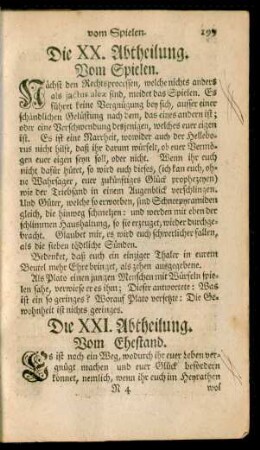 vom Spielen. 199
Die XX. Abtheilung.
Vom Spielen.
Nächst den Rechtsprocessen, welche nichts anders
als jactus aleæ sind, meidet das Spielen. Es
führet keine Vergnügung bey sich, ausser einer
schändlichen Gelüstung nach dem, das eines andern ist;
oder eine Verschwendung desjenigen, welches euer eigen
ist. Es ist eine Narrheit, worwider auch der Hellebo-
rus nicht hilft, daß ihr darum würfelt, ob euer Vermö-
gen euer eigen seyn soll, oder nicht. Wenn ihr euch
nicht dafür hütet, so wird euch dieses, (ich kan euch, oh-
ne Wahrsager, euer zukünftiges Glück prophezeyen)
wie der Triebsand in einem Augenblick verschlingen.
Und Güter, welche so erworben, sind Schneepyramiden
gleich, die hinweg schmelzen: und werden mit eben der
schlimmen Haushaltung, so sie erzeuget, wieder durchge-
bracht. Glaubet mir, es wird euch schwerlicher fallen,
als die sieben tödtliche Sünden.
Gedenket, daß euch ein einziger Thaler in eurem
Beutel mehr Ehre bringet, als zehen ausgegebene.
Als Plato einen jungen Menschen mit Würfeln spie-
len sahe, verwiese er es ihm; Dieser antwortete: Was
ist ein so geringes? Worauf Plato versetzte: Die Ge-
wohnheit ist nichts geringes.
Die XXI. Abtheilung.
Vom Ehestand.
Es ist noch ein Weg, wodurch ihr euer Leben ver-
gnügt machen und euer Glück befördern
könnet, nemlich, wenn ihr euch im Heyrathen
N 4 wol